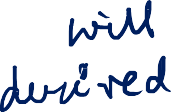 will
desired